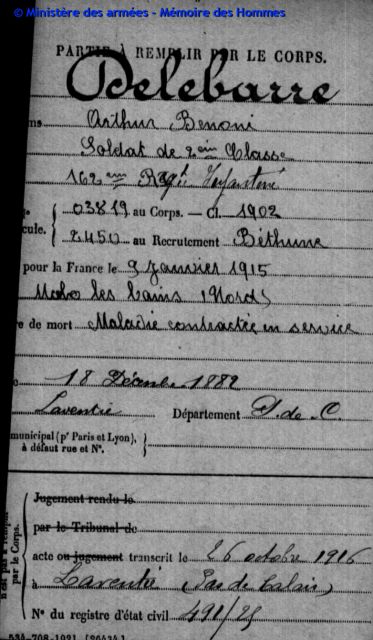 © Ministère des armées - Mémoire des Hommes
PARTIE À REMPLIR PAR LE CORPS.
Delebarre
Arthur Benoni
Soldat de 2ème Classe
162eme Régt Infanterie
03819 au Corps. — Cl. 1902
cule. 2450 au Recrutement Béthune
pour la France le 9 Janvier 1915
les bains (Nord)
de mort Maladie contractée en service
18 Décembre 1882
Laventie Département P. de C.
municipal (pr Paris et Lyon),
à défaut rue et N°.
Jugement rendu le
par le Tribunal de
acte ou jugement transcrit le 26 octobre 1916
à Laventie (Pas de Calais)
N° du registre d'état civil 491/25
par le Corps.
534-708-1921. [26434.]